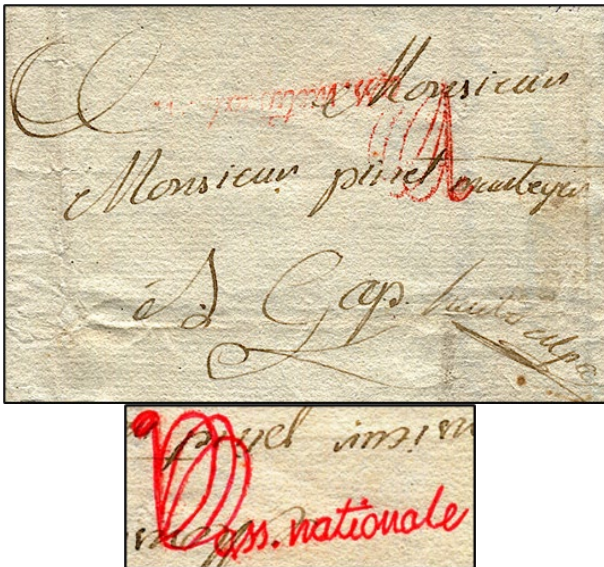 A Monsieur
Monsieur pinet
A Gap. hautes alpes
ass. nationale